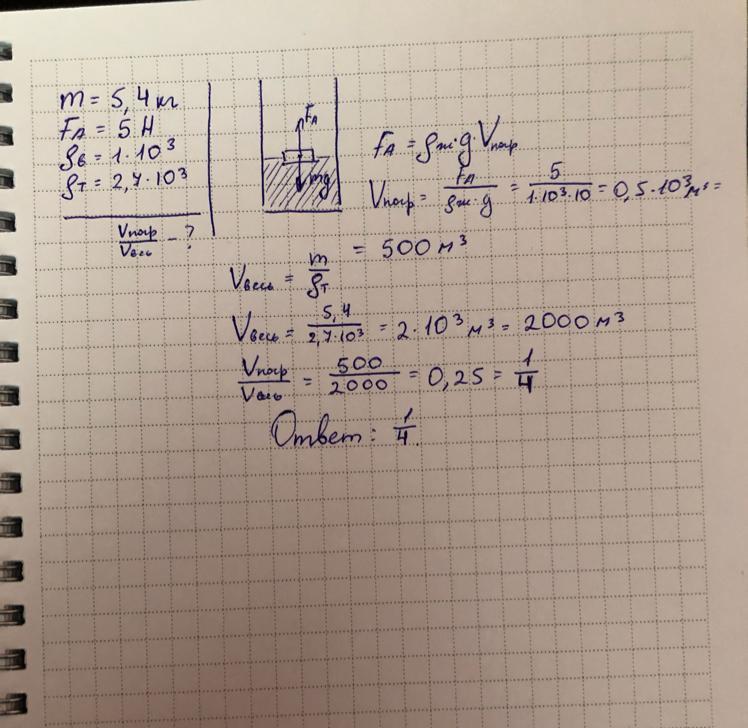 m = 5,4 кг
FA = 5 Н
ρв = 1·10³
ρт = 2,7·10³
Vпогр/Vвесь - ?
FA
mg
FA = ρж·g Vпогр
Vпогр = FA/ρж·g = 5/1·10³·10 = 0,5·10³ м³ =
= 500 м³
Vвесь = m/ρт
Vвесь = 5,4/2,7·10³ = 2·10³ м³ = 2000 м³
Vпогр/Vвесь = 500/2000 = 0,25 = 1/4
Ответ: 1/4.